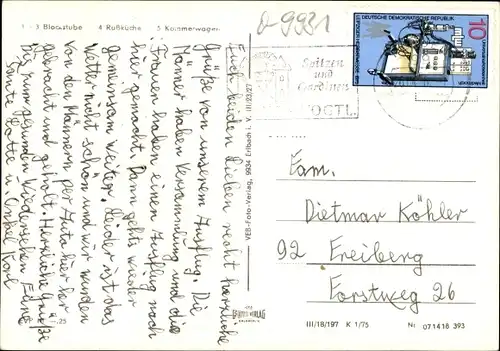 1 - 3 Blockstube 4 Rußküche 5 Kammerwagen
Euch beiden Lieben recht herzliche
Grüße von unserem Ausflug. Die
Männer haben Versammlung und die
Frauen haben einen Ausflug nach
hier gemacht. Dann gehts wieder
gemeinsam weiter. Leider ist das
Wetter nicht schön und wir wurden
von den Männern per Auto hier her
gebracht und geholt. Herzliche Grüße
bis zum gesunden Wiedersehen Eure
Tante Lotte u. Onkel Karl
VEB-Foto-Verlag, 9934 Erlbach i. V.
Ø-9931
Spitzen
und
Gardinen
VOGTL.
DEUTSCHE DEMOKRATISCHE REPUBLIK
10
Fam.
Dietmar Köhler
92 Freiberg
Forstweg 26
III/18/197 K 1/75 Nr 071418 393